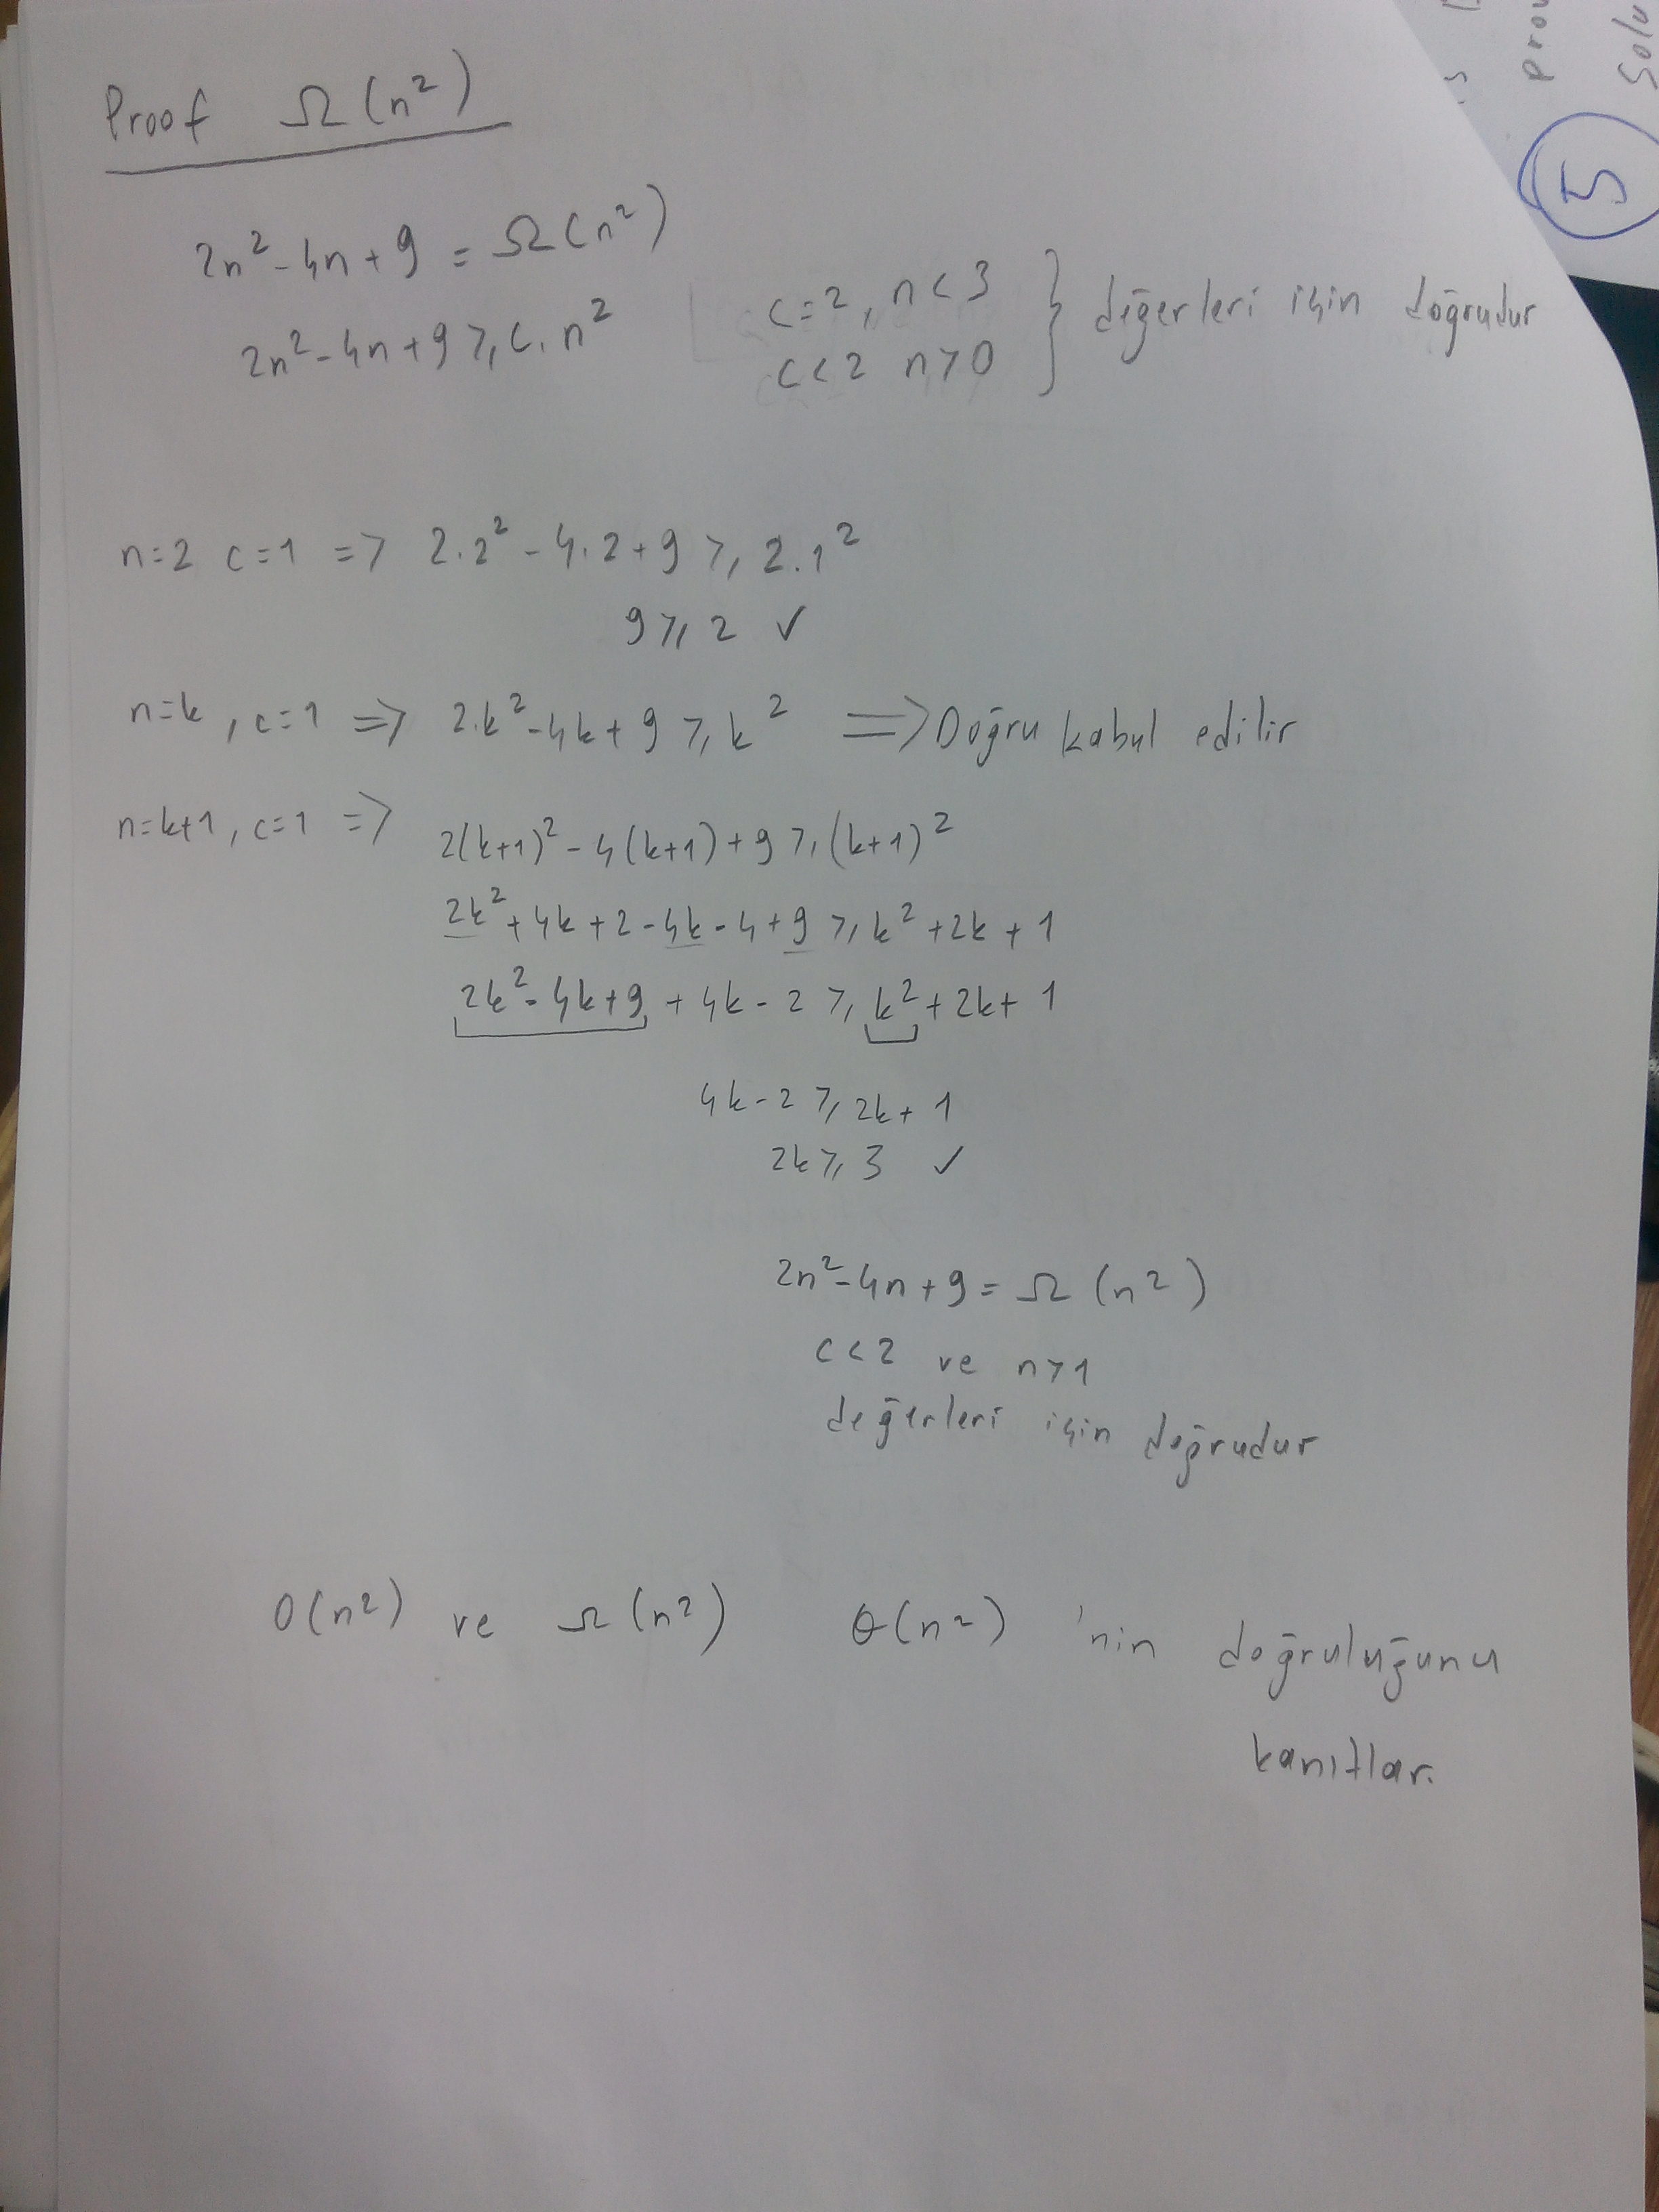 Proof Ω(n²)
2n²-4n+9 = Ω(n²)
2n²-4n+9 ≥ c.n²
c=2, n<3
c<2 n>0 } değerleri için doğrudur
n=2 c=1 => 2.2²-4.2+9 ≥ 2.1²
9 ≥ 2 ✓
n=k, c=1 => 2.k²-4k+9 ≥ k² => Doğru kabul edilir
n=k+1, c=1 => 2(k+1)²-4(k+1)+9 ≥ (k+1)²
2k²+4k+2-4k-4+9 ≥ k²+2k+1
2k²-4k+9+4k-2 ≥ k²+2k+1
4k-2 ≥ 2k+1
2k ≥ 3 ✓
2n²-4n+9 = Ω(n²)
c<2 ve n>1
değerleri için doğrudur
O(n²) ve Ω(n²) θ(n²) 'nin doğruluğunu
kanıtlar.
5